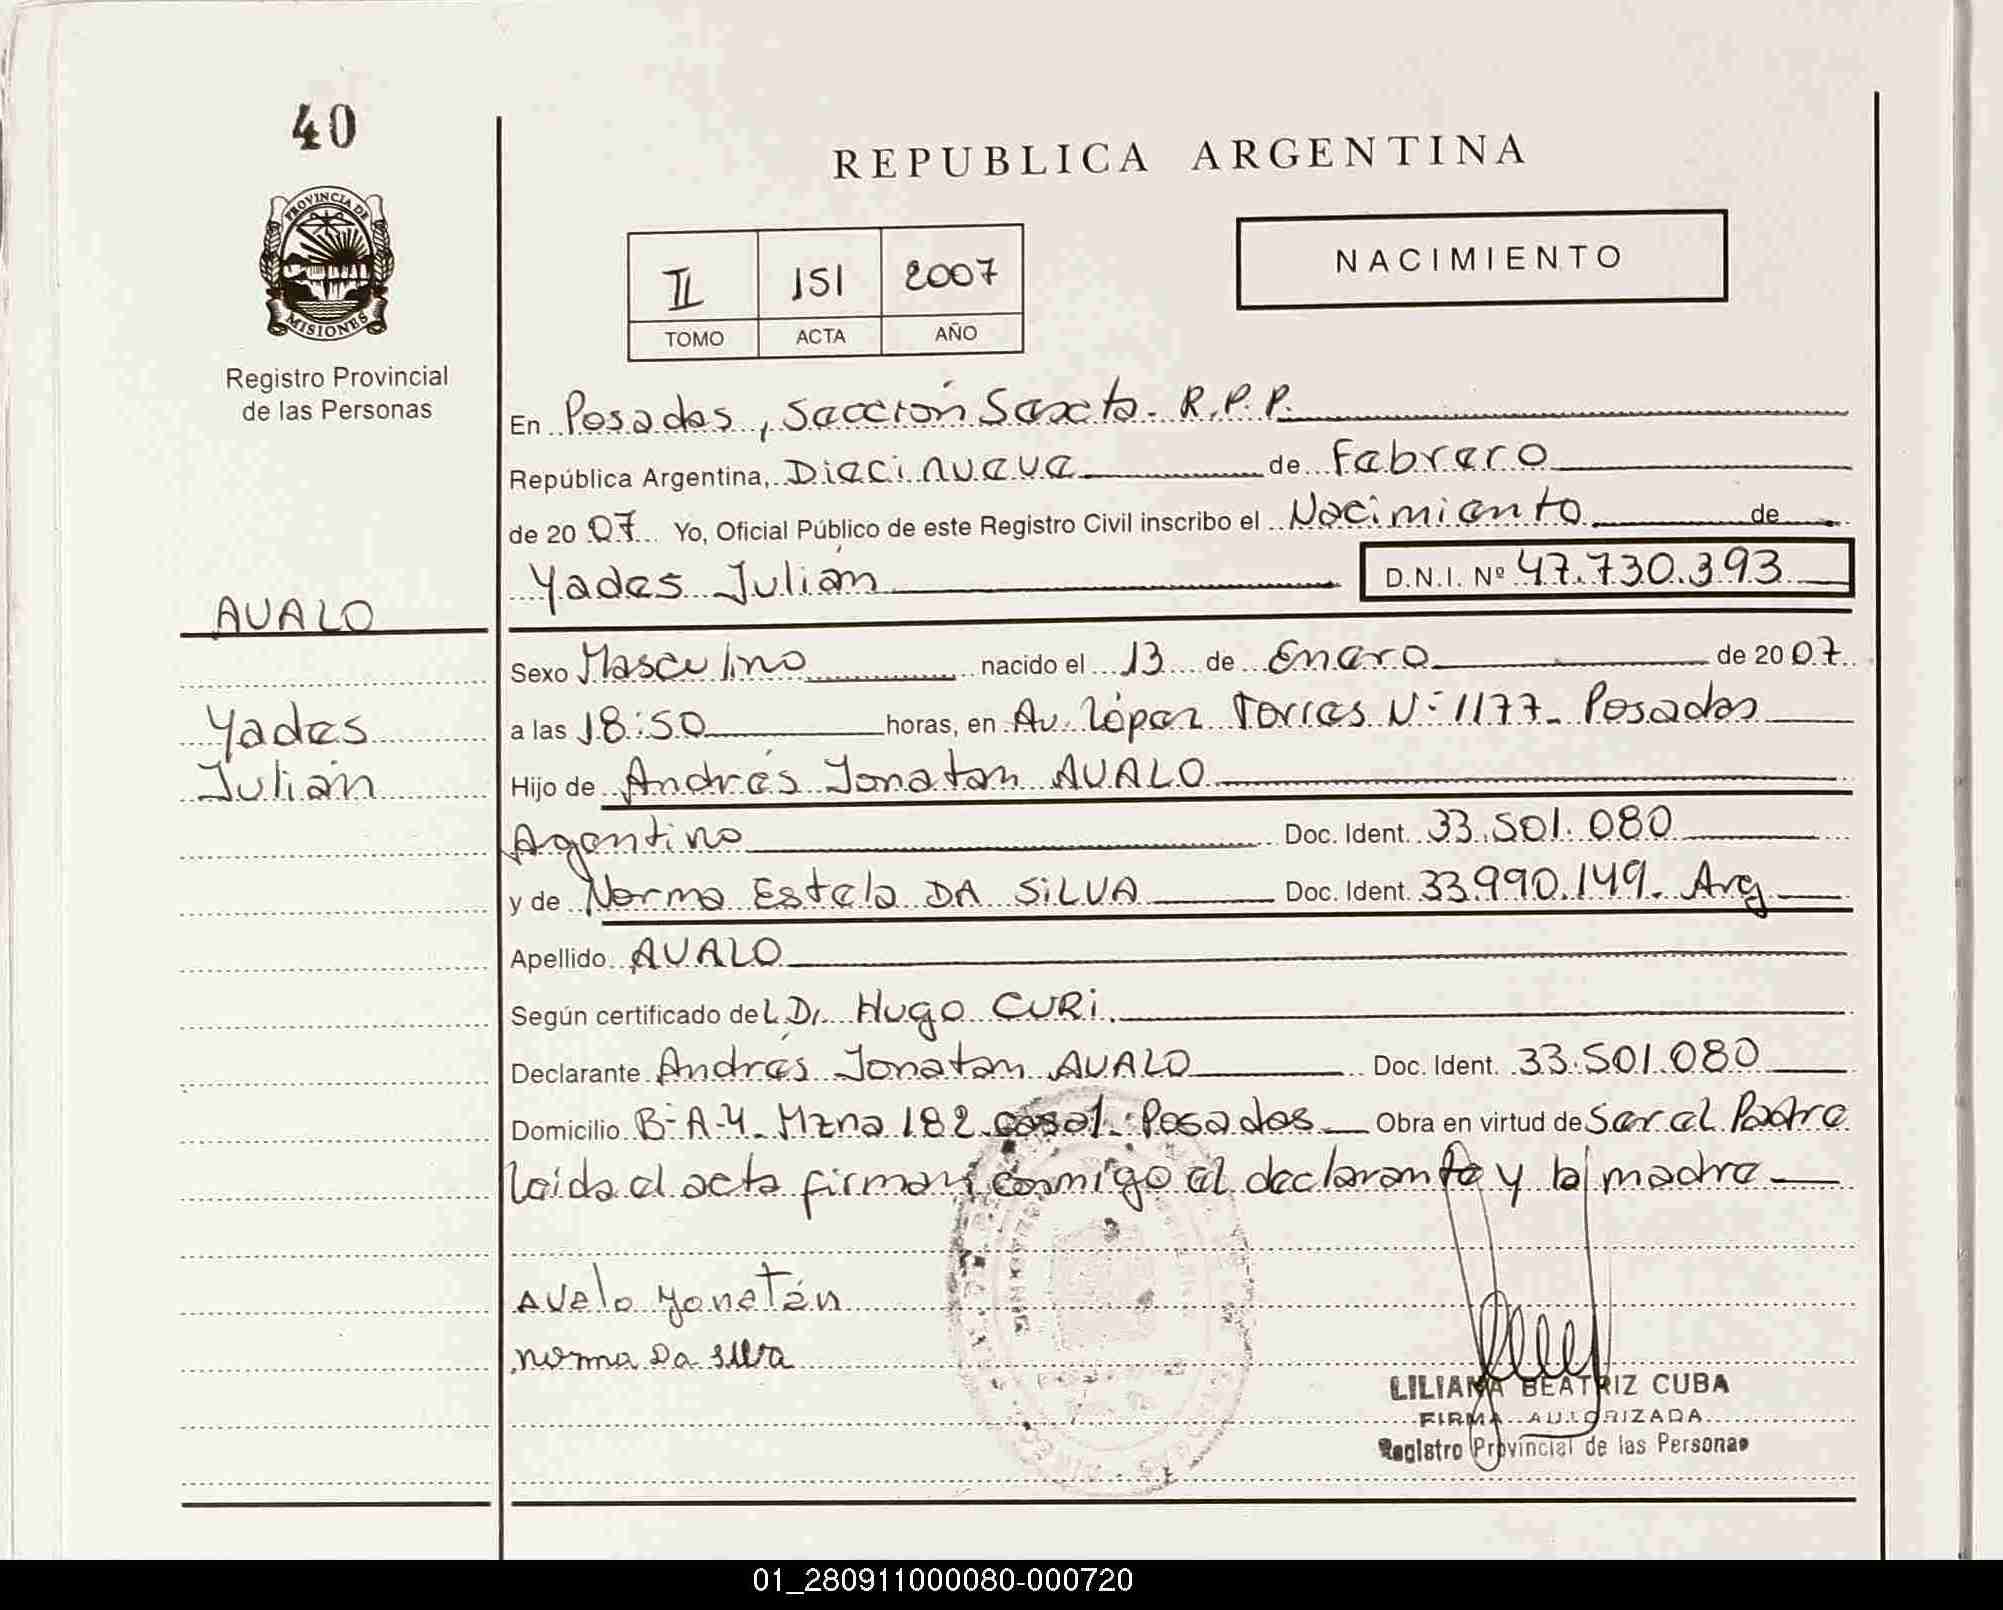 40
PROVINCIA DE
MISIONES
Registro Provincial
de las Personas
REPUBLICA ARGENTINA
II 151 2007
TOMO ACTA AÑO
NACIMIENTO
En Posadas, Sección Sexta. R.P.P.
República Argentina, Diecinueve de Febrero
de 2007 Yo, Oficial Público de este Registro Civil inscribo el Nacimiento de
Yades Julián D.N.I. Nº 47.730.393
AVALO
Sexo Masculino nacido el 13 de Enero de 2007
Yades
a las 18:50 horas, en Av. López Torres Nº 1177- Posadas
Julián
Hijo de Andrés Jonatan AVALO
Agentino Doc. Ident. 33.501.080
y de Norma Estela DA SiLVA Doc. Ident. 33.990.149. Arg
Apellido AVALO
Según certificado del Dr. Hugo CURi.
Declarante Andrés Jonatan AVALO Doc. Ident. 33.501.080
Domicilio Bº A-4- Mzna 182 casa1. Posadas Obra en virtud de Ser el Padre
leida el acta firman conmigo el declarante y la madre
Avalo Yonatán
norma Da silva
LILIANA BEATRIZ CUBA
FIRMA AUTORIZADA
Registro Provincial de las Personas
01_280911000080-000720